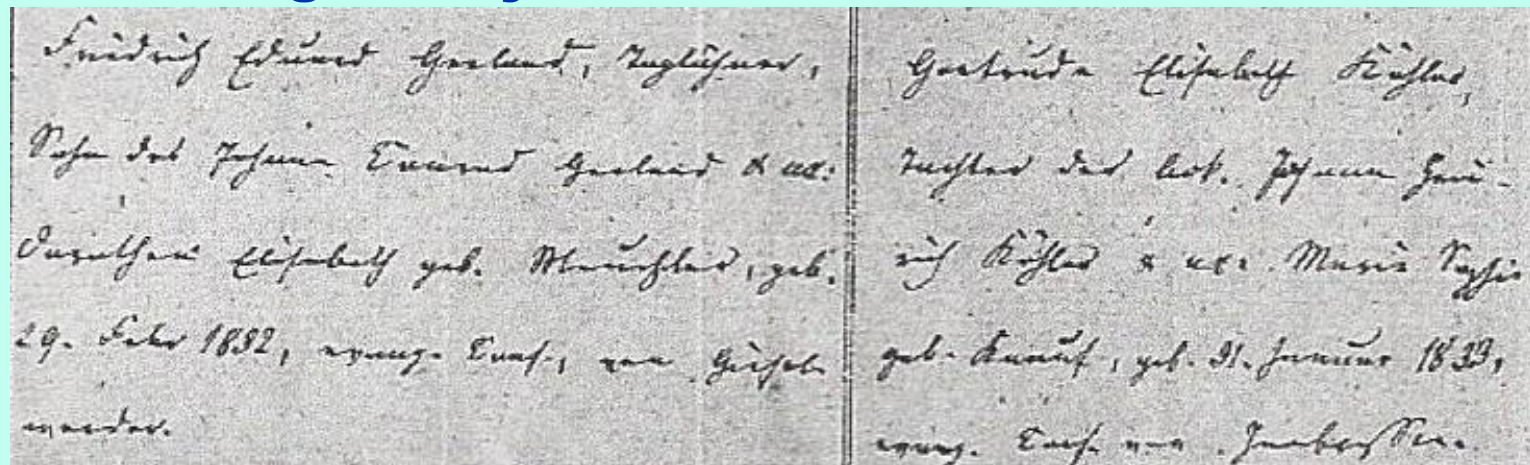 Friedrich Eduard Gerland, Taglöhner,
Sohn des Johann Conrad Gerland & ux:
Dorothea Elisabeth geb. geb.
29. Febr 1832, evang. Conf., von Gieselwerder.
Gertrude Elisabeth Köhler,
Tochter des Johann Heinrich
Köhler & ux: Marie Sophie
geb. Knauf, geb. 31. Januar 1833,
evang. Conf. von